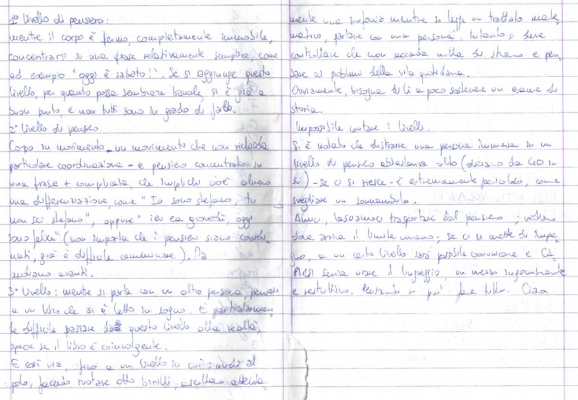 1° livello di pensiero:
mentre il corpo è fermo, completamente immobile,
concentrarsi su una frase relativamente semplice, come
ad esempio "oggi è sabato!". Se si raggiunge questo
livello, per quanto possa sembrare banale si è già a
buon punto, e non tutti sono in grado di farlo.
2° livello di pensiero
Corpo in movimento - un movimento che non richieda
particolare coordinazione - e pensiero concentrato su
una frase + complicata, che implichi cioè almeno
una differenziazione, come "Io sono stefano, tu
non sei stefano", oppure "ieri era giovedì, oggi
sono felice" (non importa che i pensieri siano coordi-
nati, già è difficile cominciare). Ma
andiamo avanti.
3° livello: mentre si parla con un'altra persona, pensare
a un libro che si è letto in sogno. È particolarmen-
te difficile passare da questo livello alla realtà,
specie se il libro è coinvolgente.
E così via, fino a un livello in cui: nudi al
polo, facendo ruotare otto birilli, ascoltare attenta-
mente una sinfonia mentre si legge un trattato mate-
matico, parlare con una persona, intanto, deve
controllare che non accada nulla di strano e pen-
sare ai problemi della vita quotidiana.
Ovviamente, bisogna di lì a poco sostenere un esame di
storia.
Impossibile contare i livelli.
Si è notato che distrarre una persona immersa in un
livello di pensiero abbastanza alto (diciamo da 40 in
su) - se ci si riesce - è estremamente pericoloso, come
svegliare un sonnambulo.
lasciamoci trasportare dal pensiero, vediamo
dove arriva il limite umano; se ci si mette di impe-
gno, a un certo livello sarà possibile comunicare e
senza usare il linguaggio, un mezzo
e restrittivo. Pensando si può fare tutto. Ciao